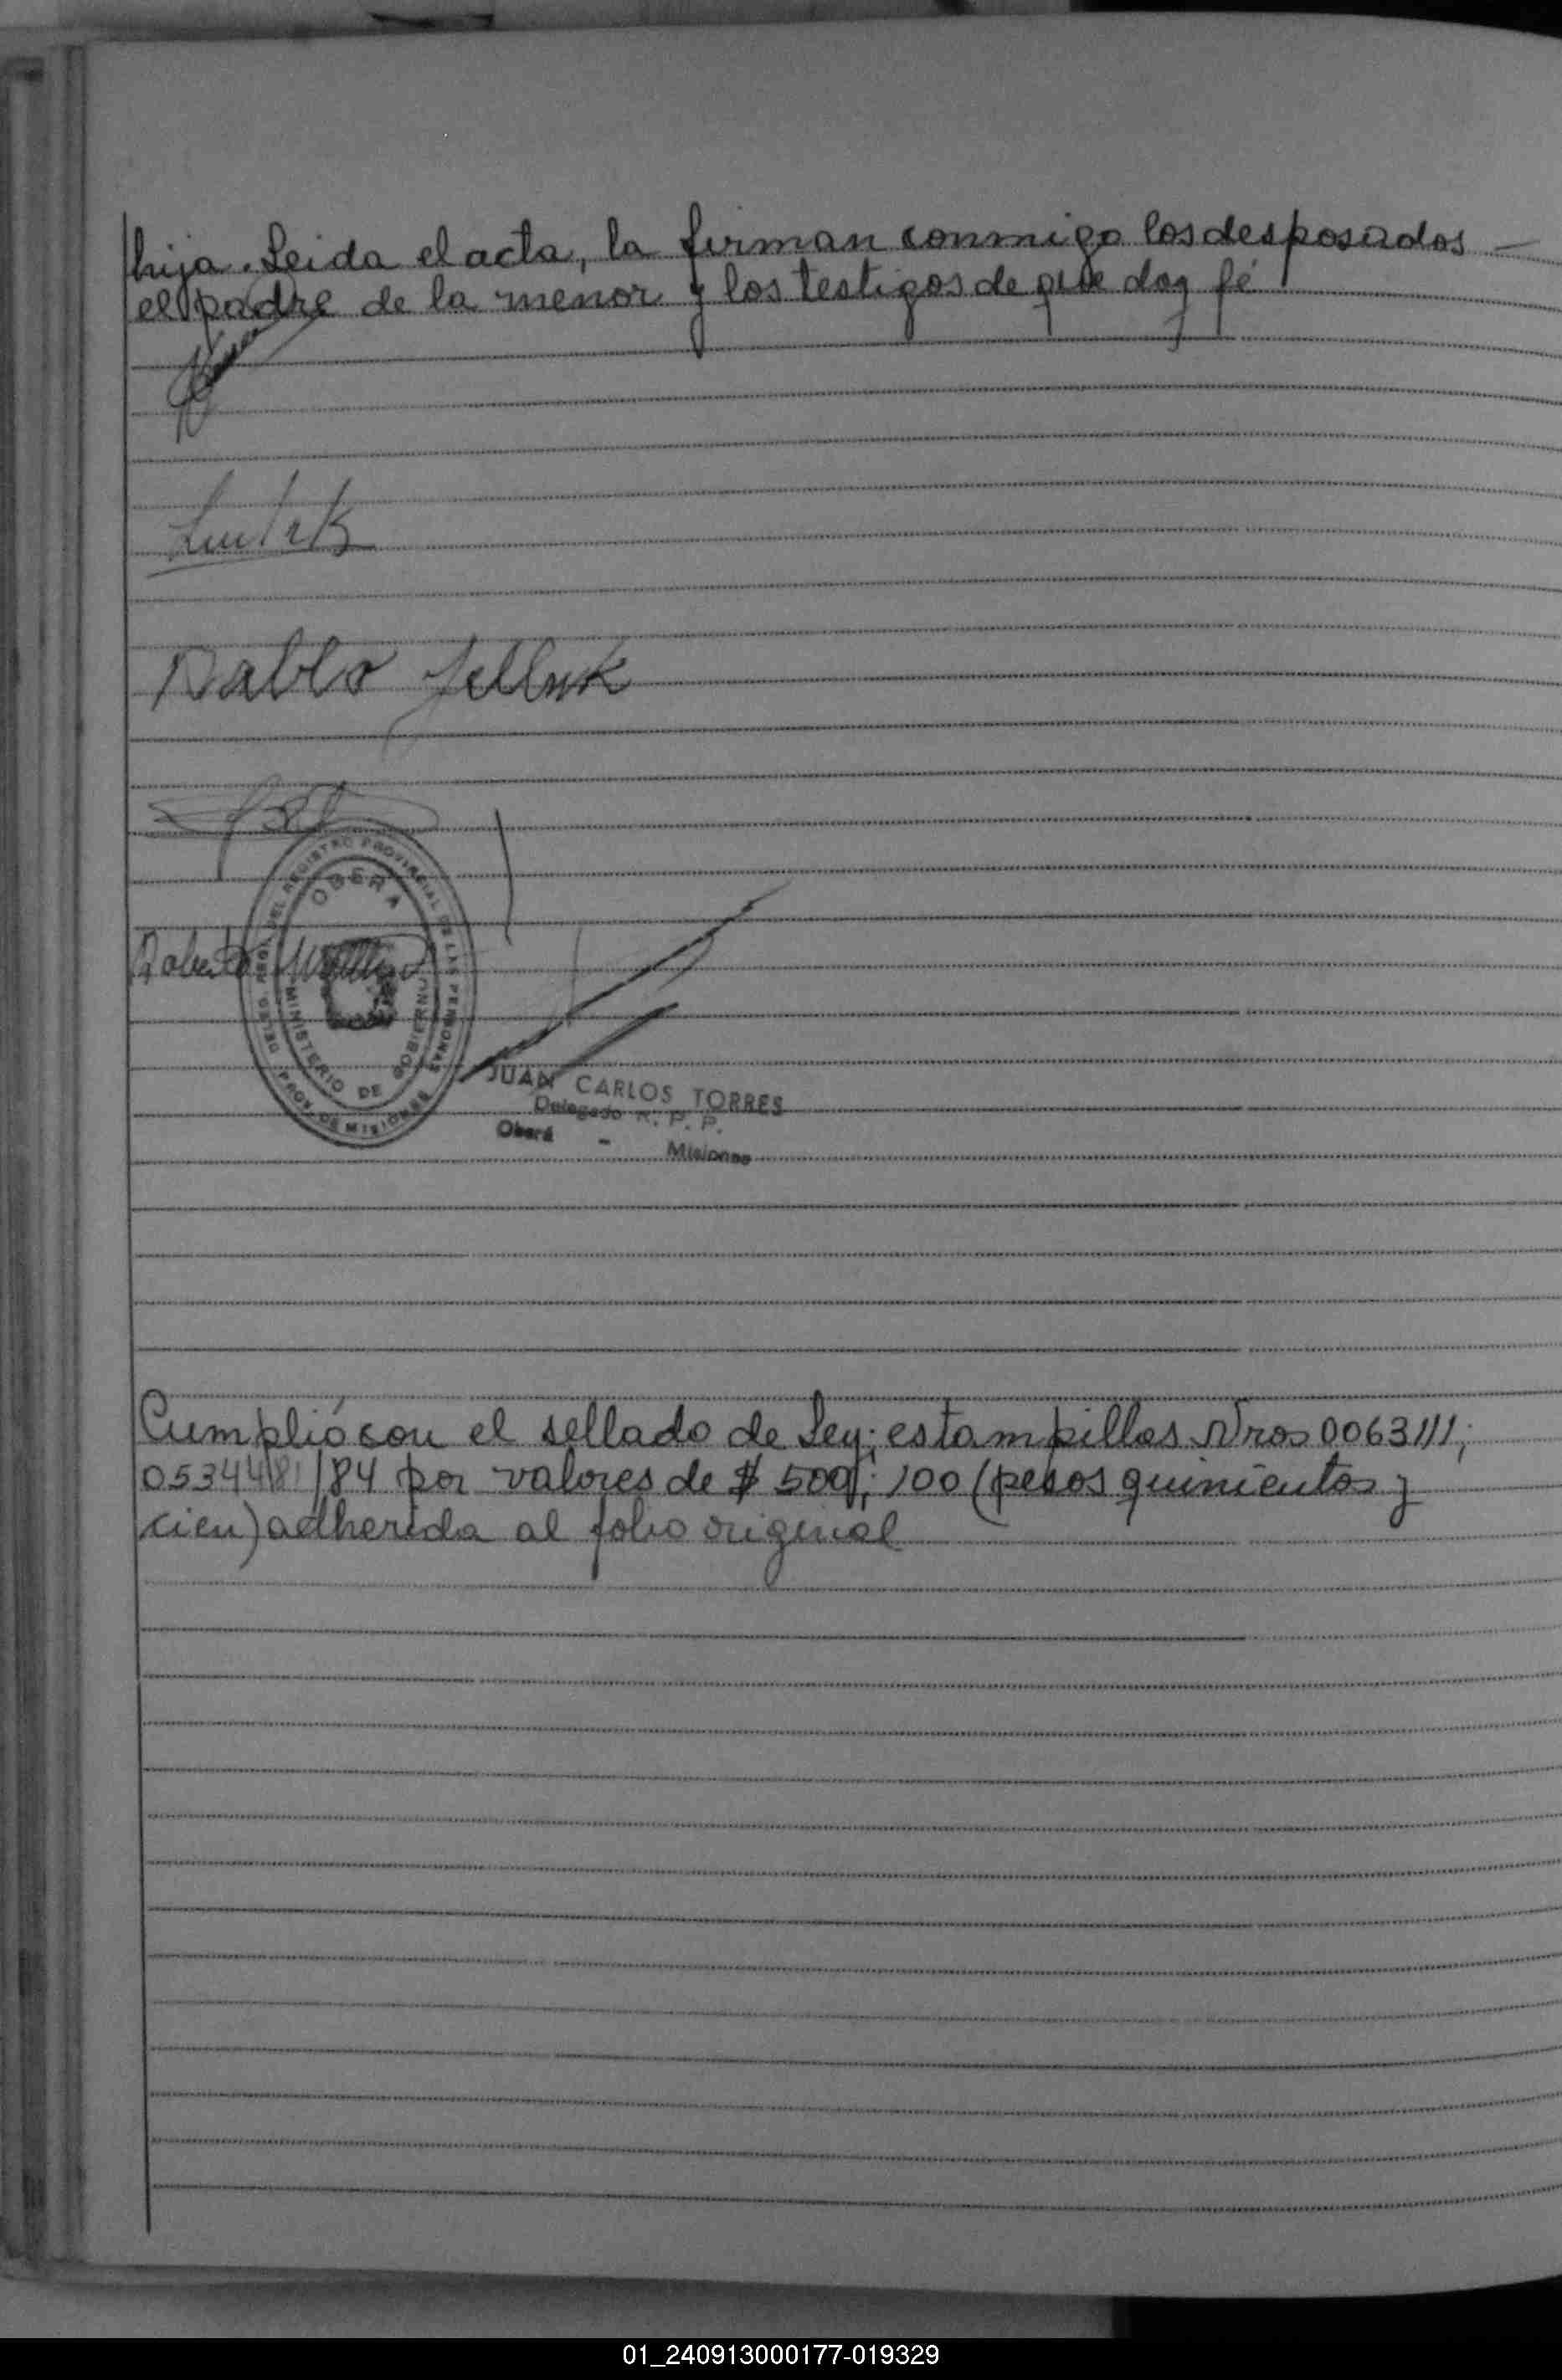 hija. Leida el acta, la firman conmigo los desposados —
el padre de la menor y los testigos de que doy fé
Pablo
Roberto
DELEG. REGI. DEL REGISTRO PROVINCIAL DE LAS PERSONAS
PROV. DE MISIONES
OBERA
MINISTERIO DE GOBIERNO
JUAN CARLOS TORRES
Delegado R. P. P.
Oberá - Misiones
Cumplió con el sellado de Ley; estampillas Nros 0063111;
0534481/84 por valores de $ 500; 100 (pesos quinientos y
cien) adherida al folio original
01_240913000177-019329